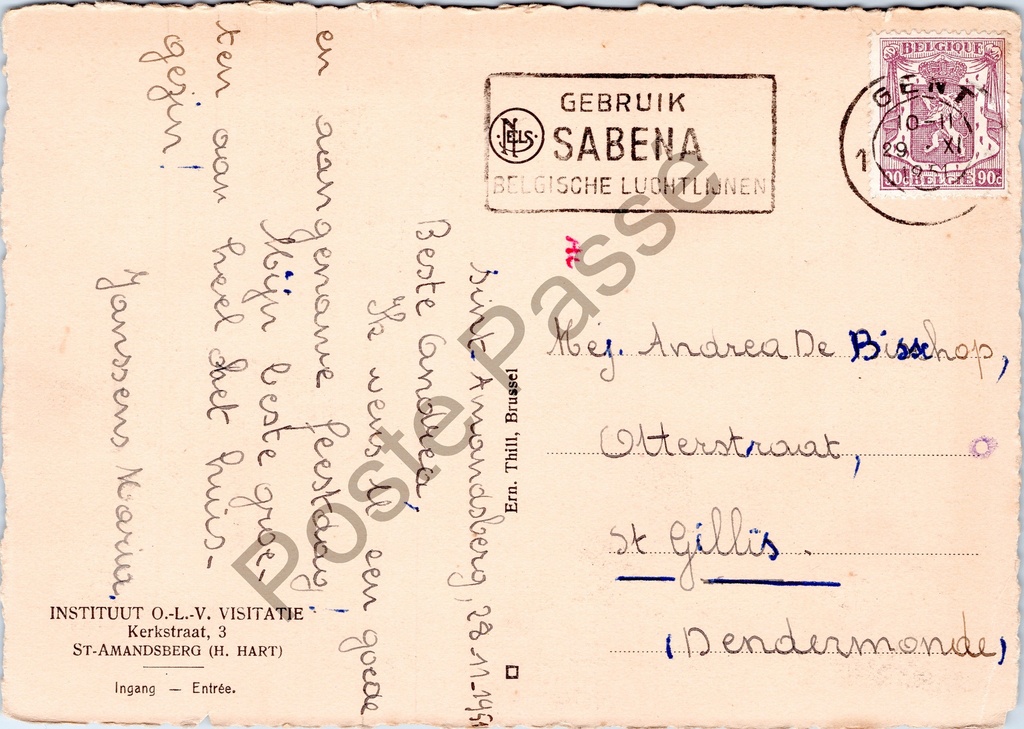 Sint-Amandsberg, 28-11-1951
Beste Andrea
Ik wens U een goede
en aangename feestdag
Mijn beste groe-
ten aan heel het huis-
gezin!
Janssens Maria
INSTITUUT O.-L.-V. VISITATIE
Kerkstraat, 3
ST-AMANDSBERG (H. HART)
Ingang — Entrée.
Ern. Thill, Brussel
NELS
GEBRUIK
SABENA
BELGISCHE LUCHTLIJNEN
GENT
1
10-11
29 XI
BELGIQUE
90c BELGIË 90c
Mej. Andrea De Bisschop,
Otterstraat,
St Gillis.
(Dendermonde)
Poste Passe